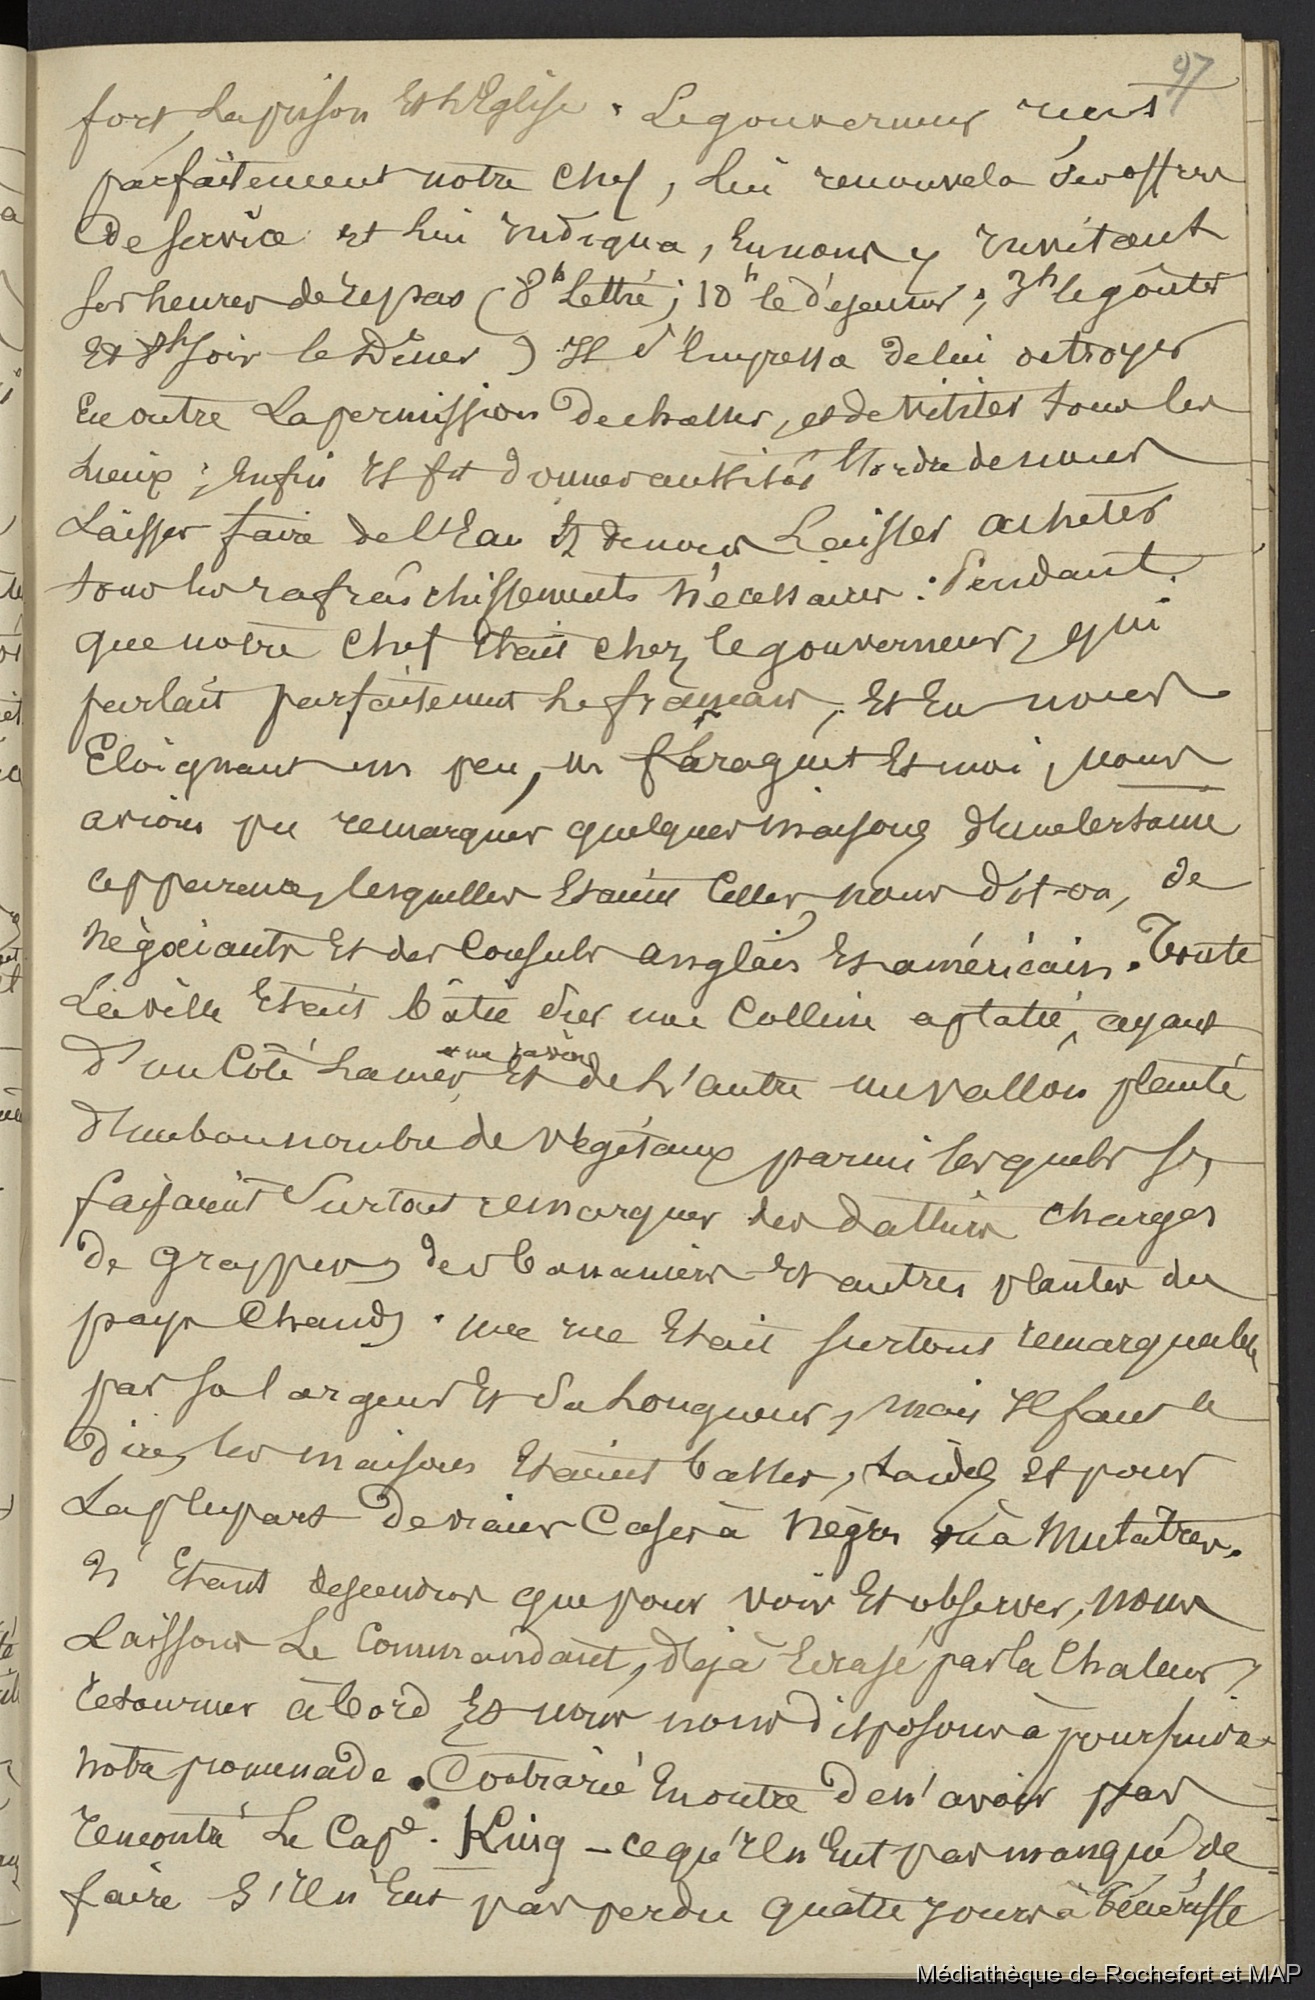 97
fort, la prison et l'Eglise. Le gouverneur reçut
parfaitement notre chef, lui renouvela ses offres
de service et lui indiqua, en nous y invitant
ses heures de repas (8h le thé; 10h le déjeuner; 3h le goûter
et 8h soir le Dîner) Il s'empressa de lui octroyer
en outre la permission de chasser, et de visiter tous les
lieux; enfin il fit donner aussitôt l'ordre de nous
laisser faire de l'eau et de nous laisser acheter
tous les rafraîchissements nécessaires. Pendant
que notre chef était chez le gouverneur, qui
parlait parfaitement le français, et en nous
éloignant un peu, m Faraguet et moi, nous
avions pu remarquer quelques maisons d'une certaine
apparence, lesquelles étaient celles, nous dit-on, de
négociants et des consuls anglais et américain. Toute
la ville était bâtie sur une colline aplatie, ayant
d'un côté la mer, et de l'autre un vallon planté
d'un bon nombre de végétaux parmi lesquels se
faisaient surtout remarquer des dattiers chargés
de grappes, des bananiers et autres plantes du
pays chaud. une rue était surtout remarquable
par sa largeur et sa longueur, mais il faut le
dire, les maisons étaient basses, laides et pour
la plupart de vraies cases à nègres ou à mulâtres.
N'étant descendus que pour voir et observer, nous
laissons le commandant, déjà écrasé par la chaleur,
retourner à bord et nous nous disposons à poursuivre
notre promenade. Contrarié en outre de n'avoir pas
rencontré le Cape. King - ce qu'il n'eut pas manqué de
faire s'il n'eut pas perdu quatre jours à Ténériffe
Médiathèque de Rochefort et MAP